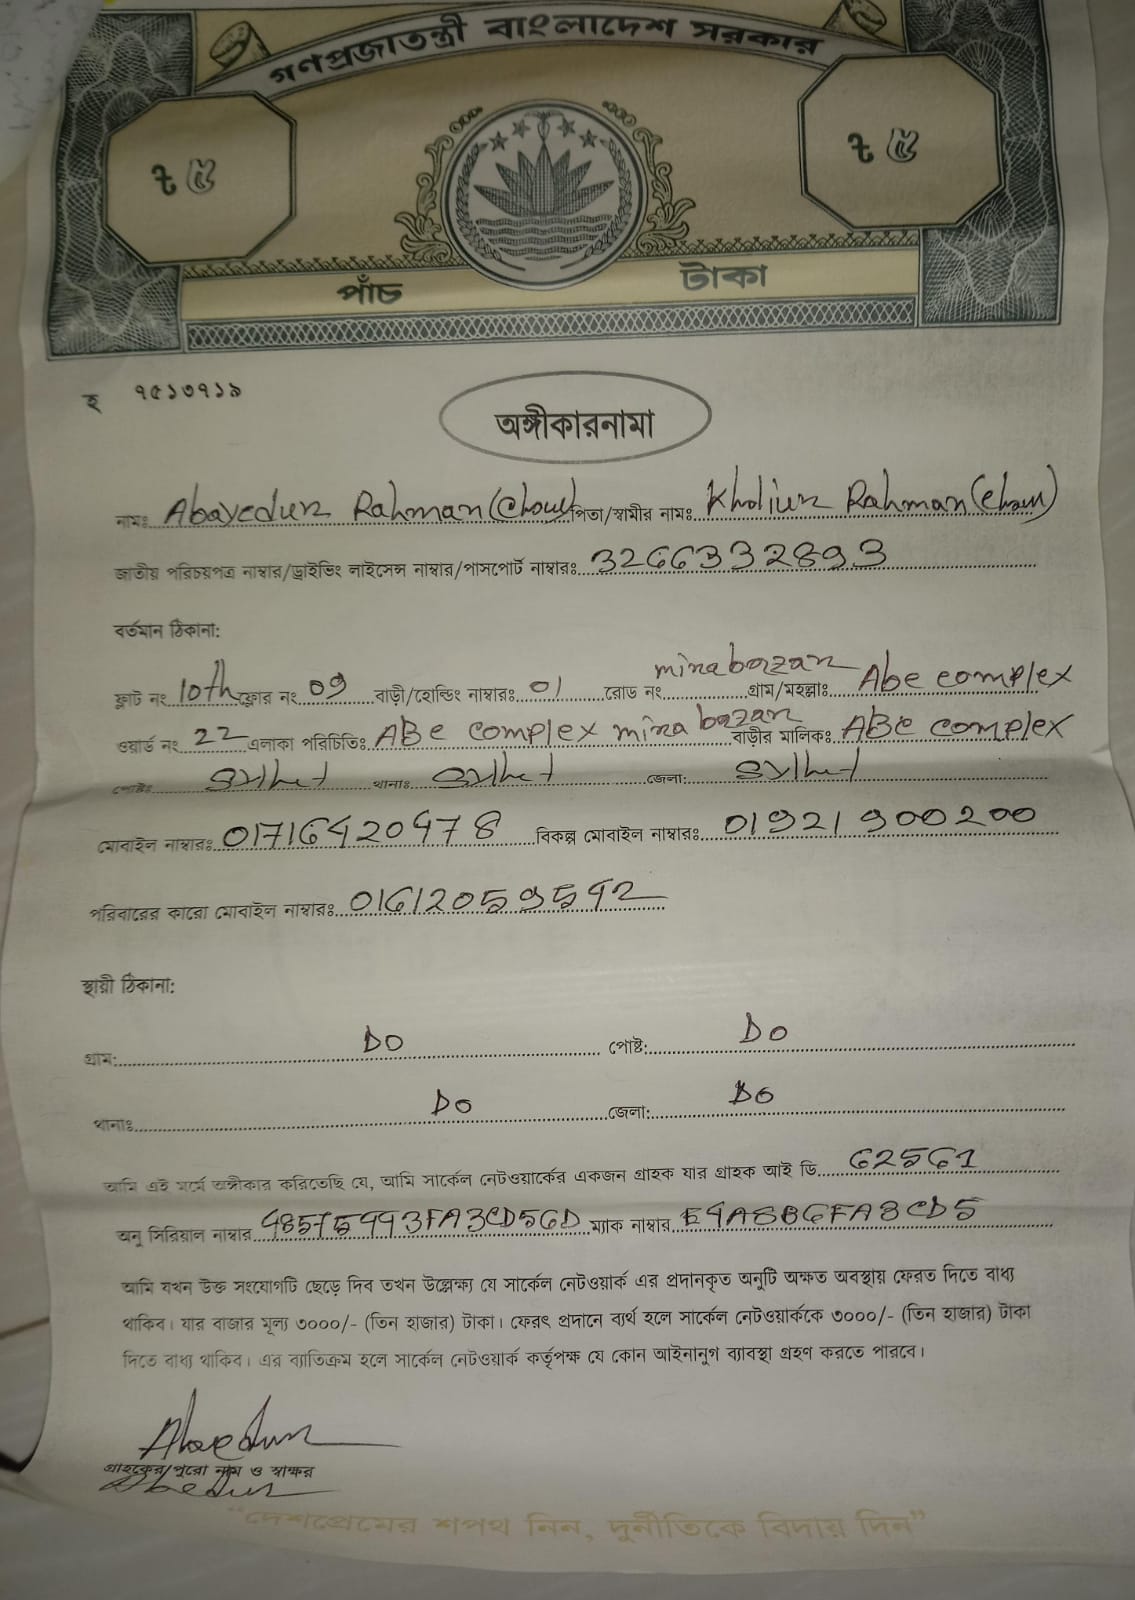 গণপ্রজাতন্ত্রী বাংলাদেশ সরকার
৳ ৫ ৳ ৫
পাঁচ টাকা
হ ৭৫১৩৭১৯
অঙ্গীকারনামা
নামঃ Abayedur Rahman (Chow) পিতা/স্বামীর নামঃ Kholiur Rahman (Chow)
জাতীয় পরিচয়পত্র নাম্বার/ড্রাইভিং লাইসেন্স নাম্বার/পাসপোর্ট নাম্বারঃ 3266332893
বর্তমান ঠিকানা:
ফ্লাট নং 10th ফ্লোর নং 09 বাড়ী/হোল্ডিং নাম্বারঃ 01 রোড নং mirabazar গ্রাম/মহল্লাঃ Abe complex
ওয়ার্ড নং 22 এলাকা পরিচিতিঃ ABe complex mira bazar বাড়ীর মালিকঃ ABe complex
পোষ্টঃ Sylhet থানাঃ Sylhet জেলা: Sylhet
মোবাইল নাম্বারঃ 01716420478 বিকল্প মোবাইল নাম্বারঃ 01921900200
পরিবারের কারো মোবাইল নাম্বারঃ 01612059542
স্থায়ী ঠিকানা:
গ্রাম: DO পোষ্ট: DO
থানাঃ DO জেলা: DO
আমি এই মর্মে অঙ্গীকার করিতেছি যে, আমি সার্কেল নেটওয়ার্কের একজন গ্রাহক যার গ্রাহক আই ডি 62561
অনু সিরিয়াল নাম্বার 48575443FA3CD56D ম্যাক নাম্বার E4A8B6FA8CD5
আমি যখন উক্ত সংযোগটি ছেড়ে দিব তখন উল্লেক্ষ্য যে সার্কেল নেটওয়ার্ক এর প্রদানকৃত অনুটি অক্ষত অবস্থায় ফেরত দিতে বাধ্য
থাকিব। যার বাজার মূল্য ৩০০০/- (তিন হাজার) টাকা। ফেরৎ প্রদানে ব্যর্থ হলে সার্কেল নেটওয়ার্ককে ৩০০০/- (তিন হাজার) টাকা
দিতে বাধ্য থাকিব। এর ব্যতিক্রম হলে সার্কেল নেটওয়ার্ক কর্তৃপক্ষ যে কোন আইনানুগ ব্যবস্থা গ্রহণ করতে পারবে।
Abayedur
গ্রাহকের পুরো নাম ও স্বাক্ষর
"দেশপ্রেমের শপথ নিন, দুর্নীতিকে বিদায় দিন"